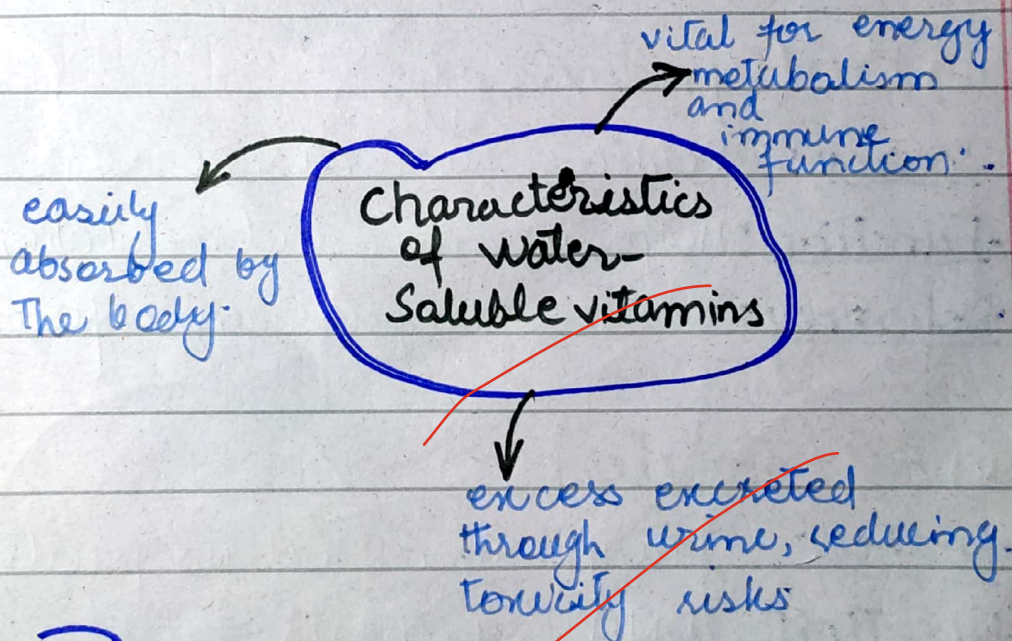 vital for energy
metabalism
and
immune
function.
easily
absorbed by
The body.
Characteristics
of water-
Saluble vitamins
excess excreted
through urine, reducing
toxicity risks